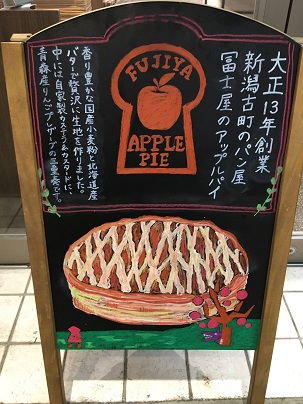 大正13年創業
新潟古町のパン屋
冨士屋のアップルパイ
FUJIYA
APPLE
PIE
香り豊かな国産小麦粉と北海道産
バターで贅沢に生地を作りました。
中には自家製カステラ&カスタードに、
青森産りんごプレザーブの三重奏です。